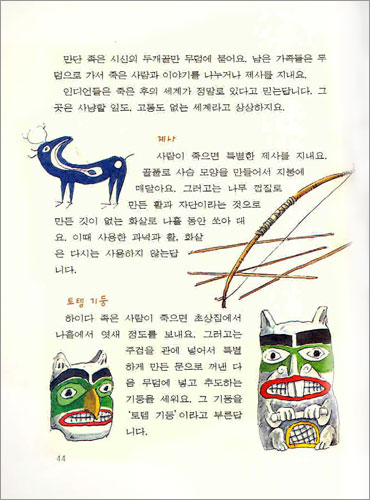 만단 족은 시신의 두개골만 무덤에 묻어요. 남은 가족들은 무
덤으로 가서 죽은 사람과 이야기를 나누거나 제사를 지내요.
인디언들은 죽은 후의 세계가 정말로 있다고 믿는답니다. 그
곳은 사냥할 일도, 고통도 없는 세계라고 상상하지요.
제사
사람이 죽으면 특별한 제사를 지내요.
골풀로 사슴 모양을 만들어서 지붕에
매달아요. 그러고는 나무 껍질로
만든 활과 자단이라는 것으로
만든 깃이 없는 화살로 나흘 동안 쏘아 대
요. 이때 사용한 과녁과 활, 화살
은 다시는 사용하지 않는답
니다.
토템 기둥
하이다 족은 사람이 죽으면 초상집에서
나흘에서 엿새 정도를 보내요. 그러고는
주검을 관에 넣어서 특별
하게 만든 문으로 꺼낸 다
음 무덤에 넣고 추도하는
기둥을 세워요. 그 기둥을
'토템 기둥'이라고 부른답
니다.
44